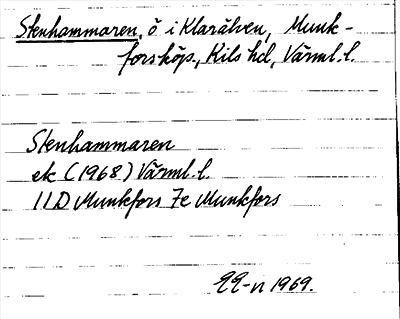 Stenhammaren, ö i Klarälven, Munk-
forsköp., Kils hd, Värml. l.
Stenhammaren
ek (1968) Värml. l.
11D Munkfors 7e Munkfors
1969.